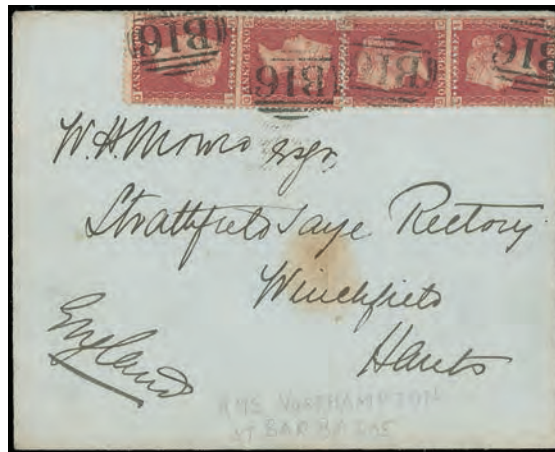 B16 B16 B16 B16
ONE PENNY
W.H. Esqr.
Strathfield Saye Rectory
Winchfield
Hants
England
HMS NORTHAMPTON
AT BARBADOS